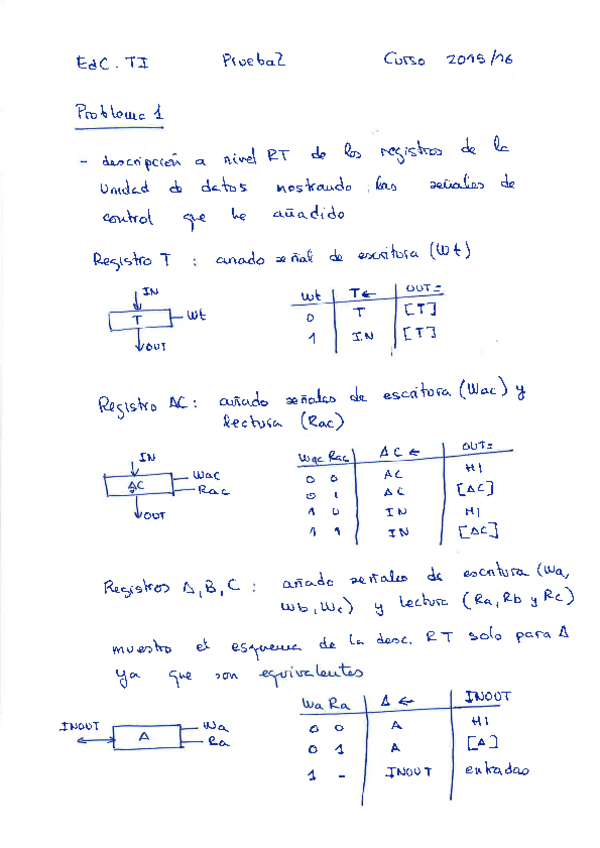 EdC. TI Prueba2 Curso 2015/16
Problema 1
- descripción a nivel RT de los registros de la
Unidad de datos mostrando las señales de
control que he añadido
Registro T : añado señal de escritura (Wt)
IN
T Wt
OUT
Wt T← OUT=
0 T [T]
1 IN [T]
Registro AC: añado señales de escritura (Wac) y
lectura (Rac)
IN
AC Wac
Rac
OUT
Wac Rac AC← OUT=
0 0 AC HI
0 1 AC [AC]
1 0 IN HI
1 1 IN [AC]
Registros A, B, C : añado señales de escritura (Wa,
Wb, Wc) y lectura (Ra, Rb y Rc)
muestro el esquema de la desc. RT solo para A
ya que son equivalentes
INOUT A Wa
Ra
Wa Ra A← INOUT
0 0 A HI
0 1 A [A]
1 - INOUT entradas